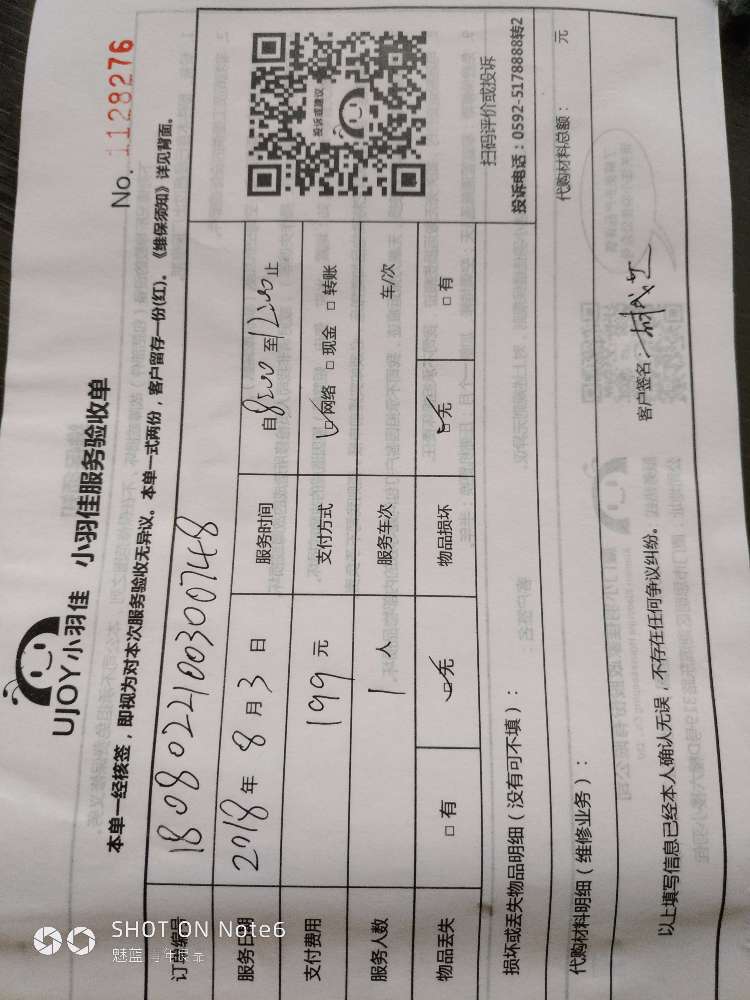 UJOY小羽佳 小羽佳服务验收单
No. 1128276
本单一经核签，即视为对本次服务验收无异议。本单一式两份，客户留存一份(红)。《维保须知》详见背面。
订单编号 1808022100300748
服务日期 2018年8月3日 服务时间 自8:00至12:00止
支付费用 199元 支付方式 ☑网络 □现金 □转账
服务人数 1人 服务车次 车/次
物品丢失 □有 ☑无 物品损坏 ☑无 □有
投诉或建议
扫码评价或投诉
投诉电话：0592-5178888转2
损坏或丢失物品明细（没有可不填）：
代购材料明细（维修业务）： 代购材料总额： 元
以上填写信息已经本人确认无误，不存在任何争议纠纷。 客户签名：
SHOT ON Note6
魅蓝 青年良品